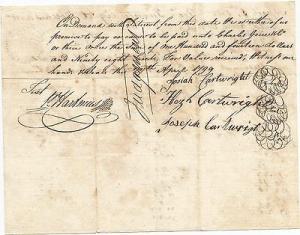 On Demand with Interest from this date We or either of us
promise to pay or cause to be paid unto Charles
or their order the Sum of One Hundred and fourteen dollars
and Ninety eight Cents, For Value received, Witness our
hands & seals the April 1799
Josiah Cartwright
Test
Hugh Cartwright
Joseph Cartwright